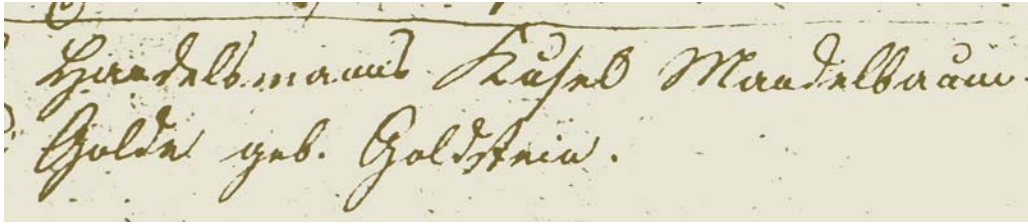 Handelsmanns Kusel Mandelbaum
Golde geb. Goldstein.